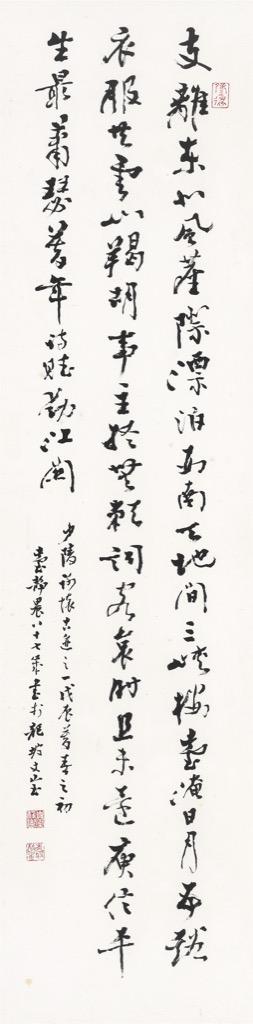 支離東北風塵際漂泊西南天地間三峽樓臺淹日月五谿
衣服共雲山羯胡事主終無賴詞客哀時且未還庾信平
生最蕭瑟暮年詩賦動江關
少陵詠懷古迹之一戊辰暮春之初
臺靜農八十七歲書於龍坡丈室